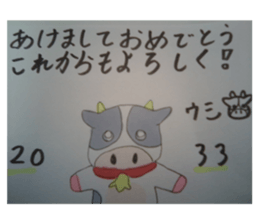 あけましておめでとう
これからもよろしく!
ウシ
20 33